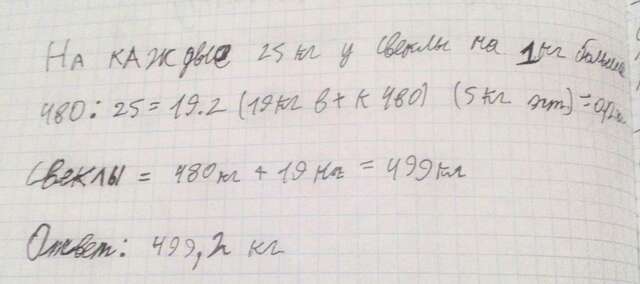 На каждые 25 кг у свеклы на 1 кг больше
480 : 25 = 19.2 (19 кг в + к 480) (5 кг =
Свеклы = 480 кг + 19 кг = 499 кг
Ответ: 499,2 кг